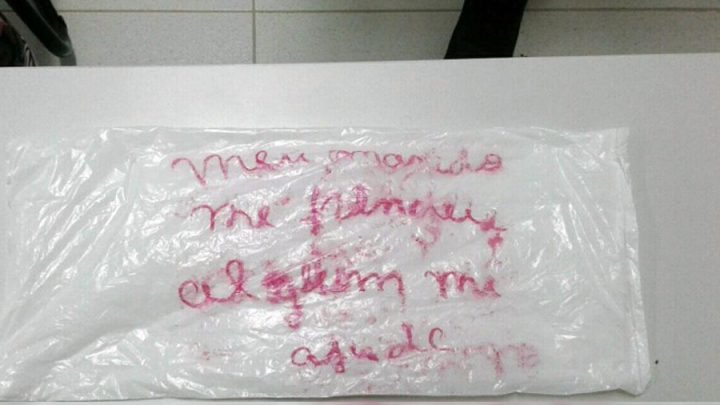 meu marido
me prendeu
alguem me
ajuda